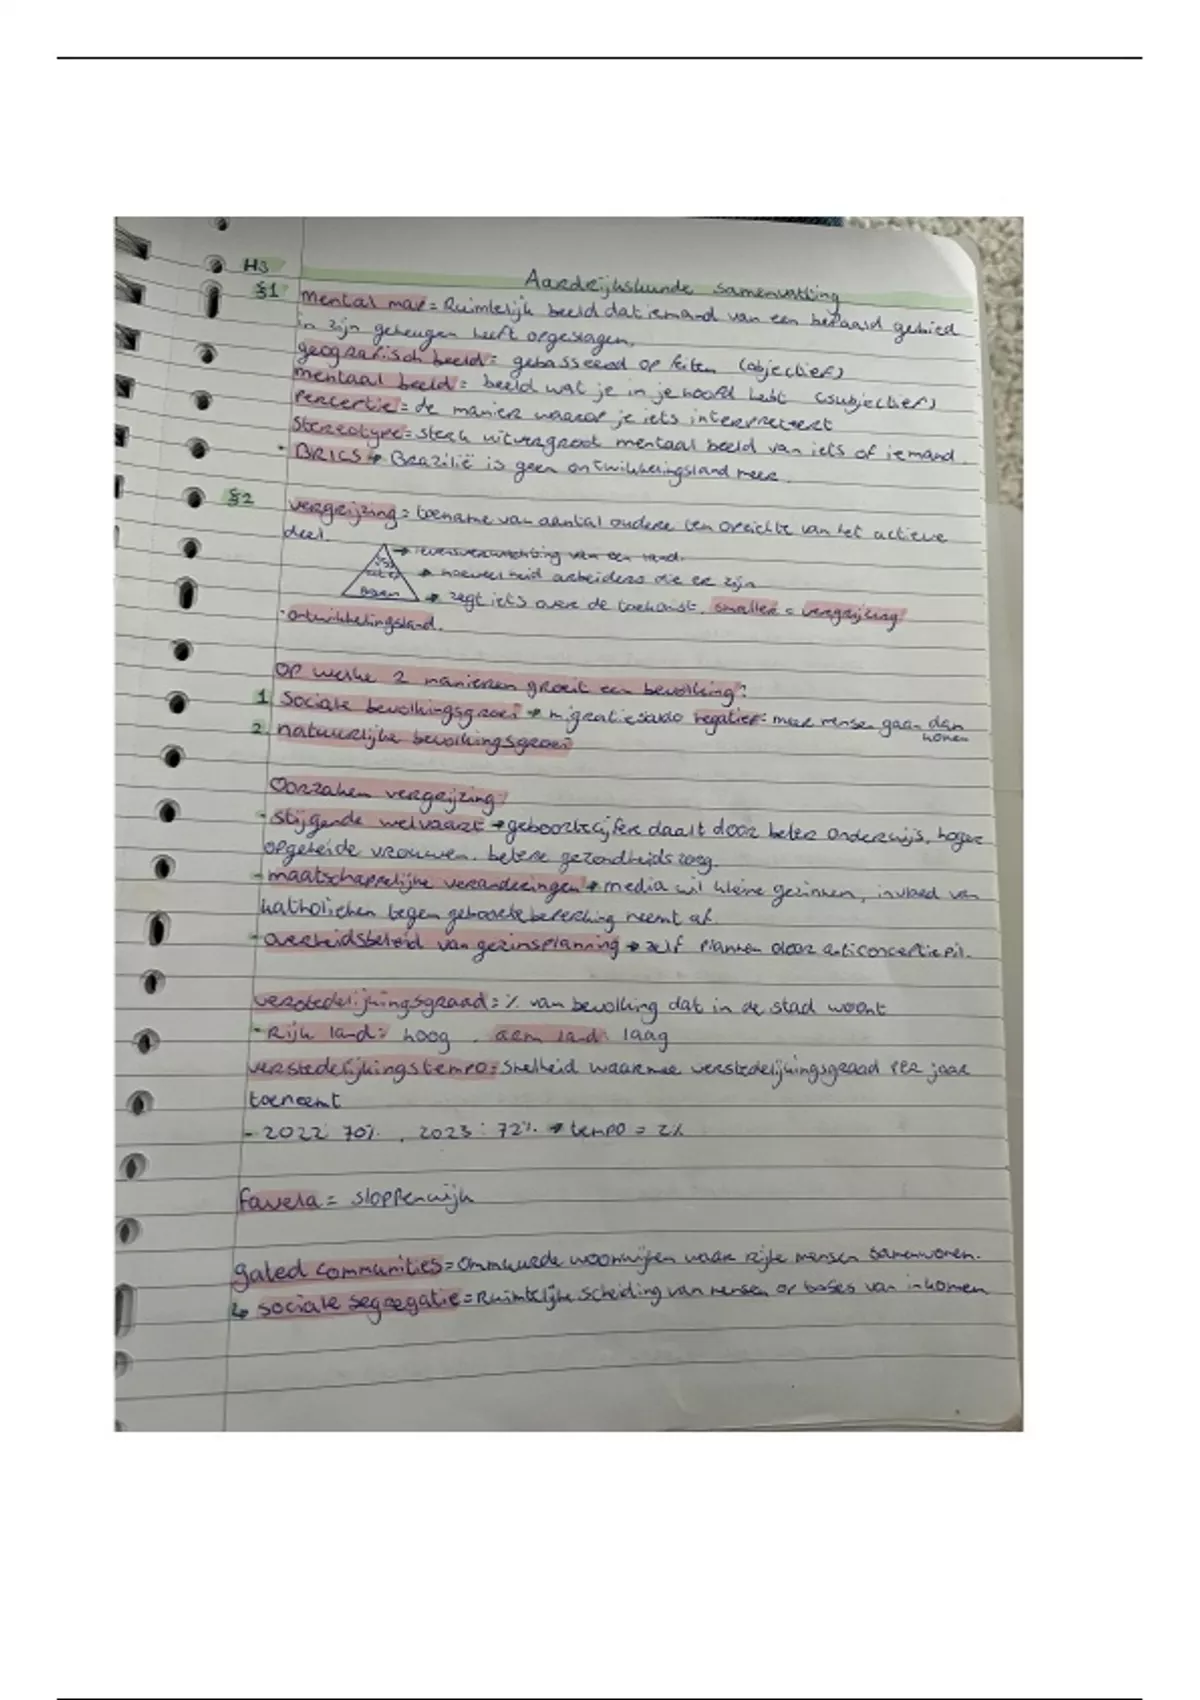 H3
Aardrijkskunde samenvatting
§1 mental map = Ruimtelijk beeld dat iemand van een bepaald gebied
in zijn geheugen heeft opgeslagen.
geografisch beeld = gebasseerd op feiten (objectief)
mentaal beeld = beeld wat je in je hoofd hebt (subjectief)
Perceptie = de manier waarop je iets interpreteert
Stereotype = sterk uitvergroot mentaal beeld van iets of iemand.
- BRICS → Brazilië is geen ontwikkelingsland meer.
§2 vergrijzing = toename van aantal oudere ten opzichte van het actieve
deel.
→ levensverwachting van een land.
→ hoeveelheid arbeiders die er zijn
→ zegt iets over de toekomst, smaller = vergrijzing
- ontwikkelingsland.
Op welke 2 manieren groeit een bevolking?
1. Sociale bevolkingsgroei → migratiesaldo negatief: meer mensen gaan dan
komen
2. natuurlijke bevolkingsgroei
Oorzaken vergrijzing:
- Stijgende welvaart → geboortecijfers daalt door beter onderwijs, hoger
opgeleide vrouwen, betere gezondheidszorg.
- maatschappelijke veranderingen → media wil kleine gezinnen, invloed van
katholieken tegen geboortebeperking neemt af.
- overheidsbeleid van gezinsplanning → zelf plannen door anticonceptiepil.
verstedelijkingsgraad = % van bevolking dat in de stad woont
- Rijk land: hoog, arm land: laag
verstedelijkingstempo = Snelheid waarmee verstedelijkingsgraad per jaar
toeneemt
- 2022: 70%, 2023: 72% → tempo = 2%
favela = sloppenwijk
gated communities = ommuurde woonwijken waar rijke mensen samenwonen.
↳ sociale segregatie = Ruimtelijke scheiding van mensen op basis van inkomen